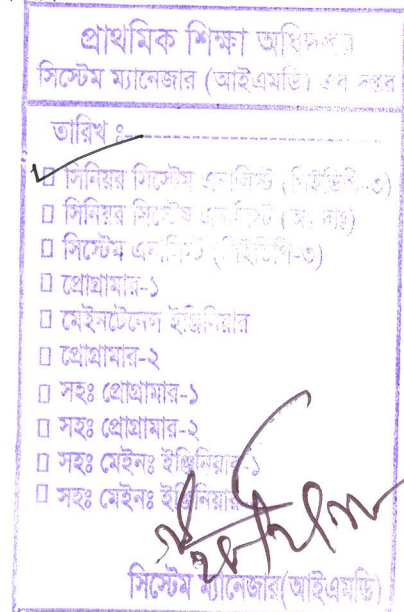 প্রাথমিক শিক্ষা অধিদপ্তর
সিস্টেম ম্যানেজার (আইএমডি) এর দপ্তর
তারিখ ঃ
সিনিয়র সিস্টেম এনালিস্ট (পিইডিপি-৩)
সিনিয়র সিস্টেম এনালিস্ট
সিস্টেম এনালিস্ট (পিইডিপি-৩)
প্রোগ্রামার-১
মেইনটেনেন্স ইঞ্জিনিয়ার
প্রোগ্রামার-২
সহঃ প্রোগ্রামার-১
সহঃ প্রোগ্রামার-২
সহঃ মেইনঃ ইঞ্জিনিয়ার-১
সহঃ মেইনঃ ইঞ্জিনিয়ার
সিস্টেম ম্যানেজার(আইএমডি)